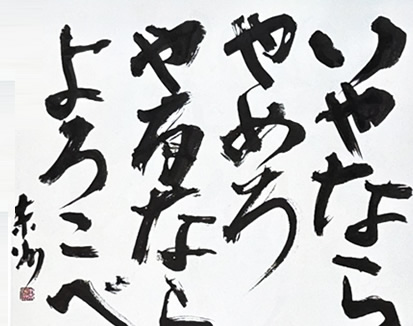 いやなら
やめろ
やるなら
よろこべ
東州